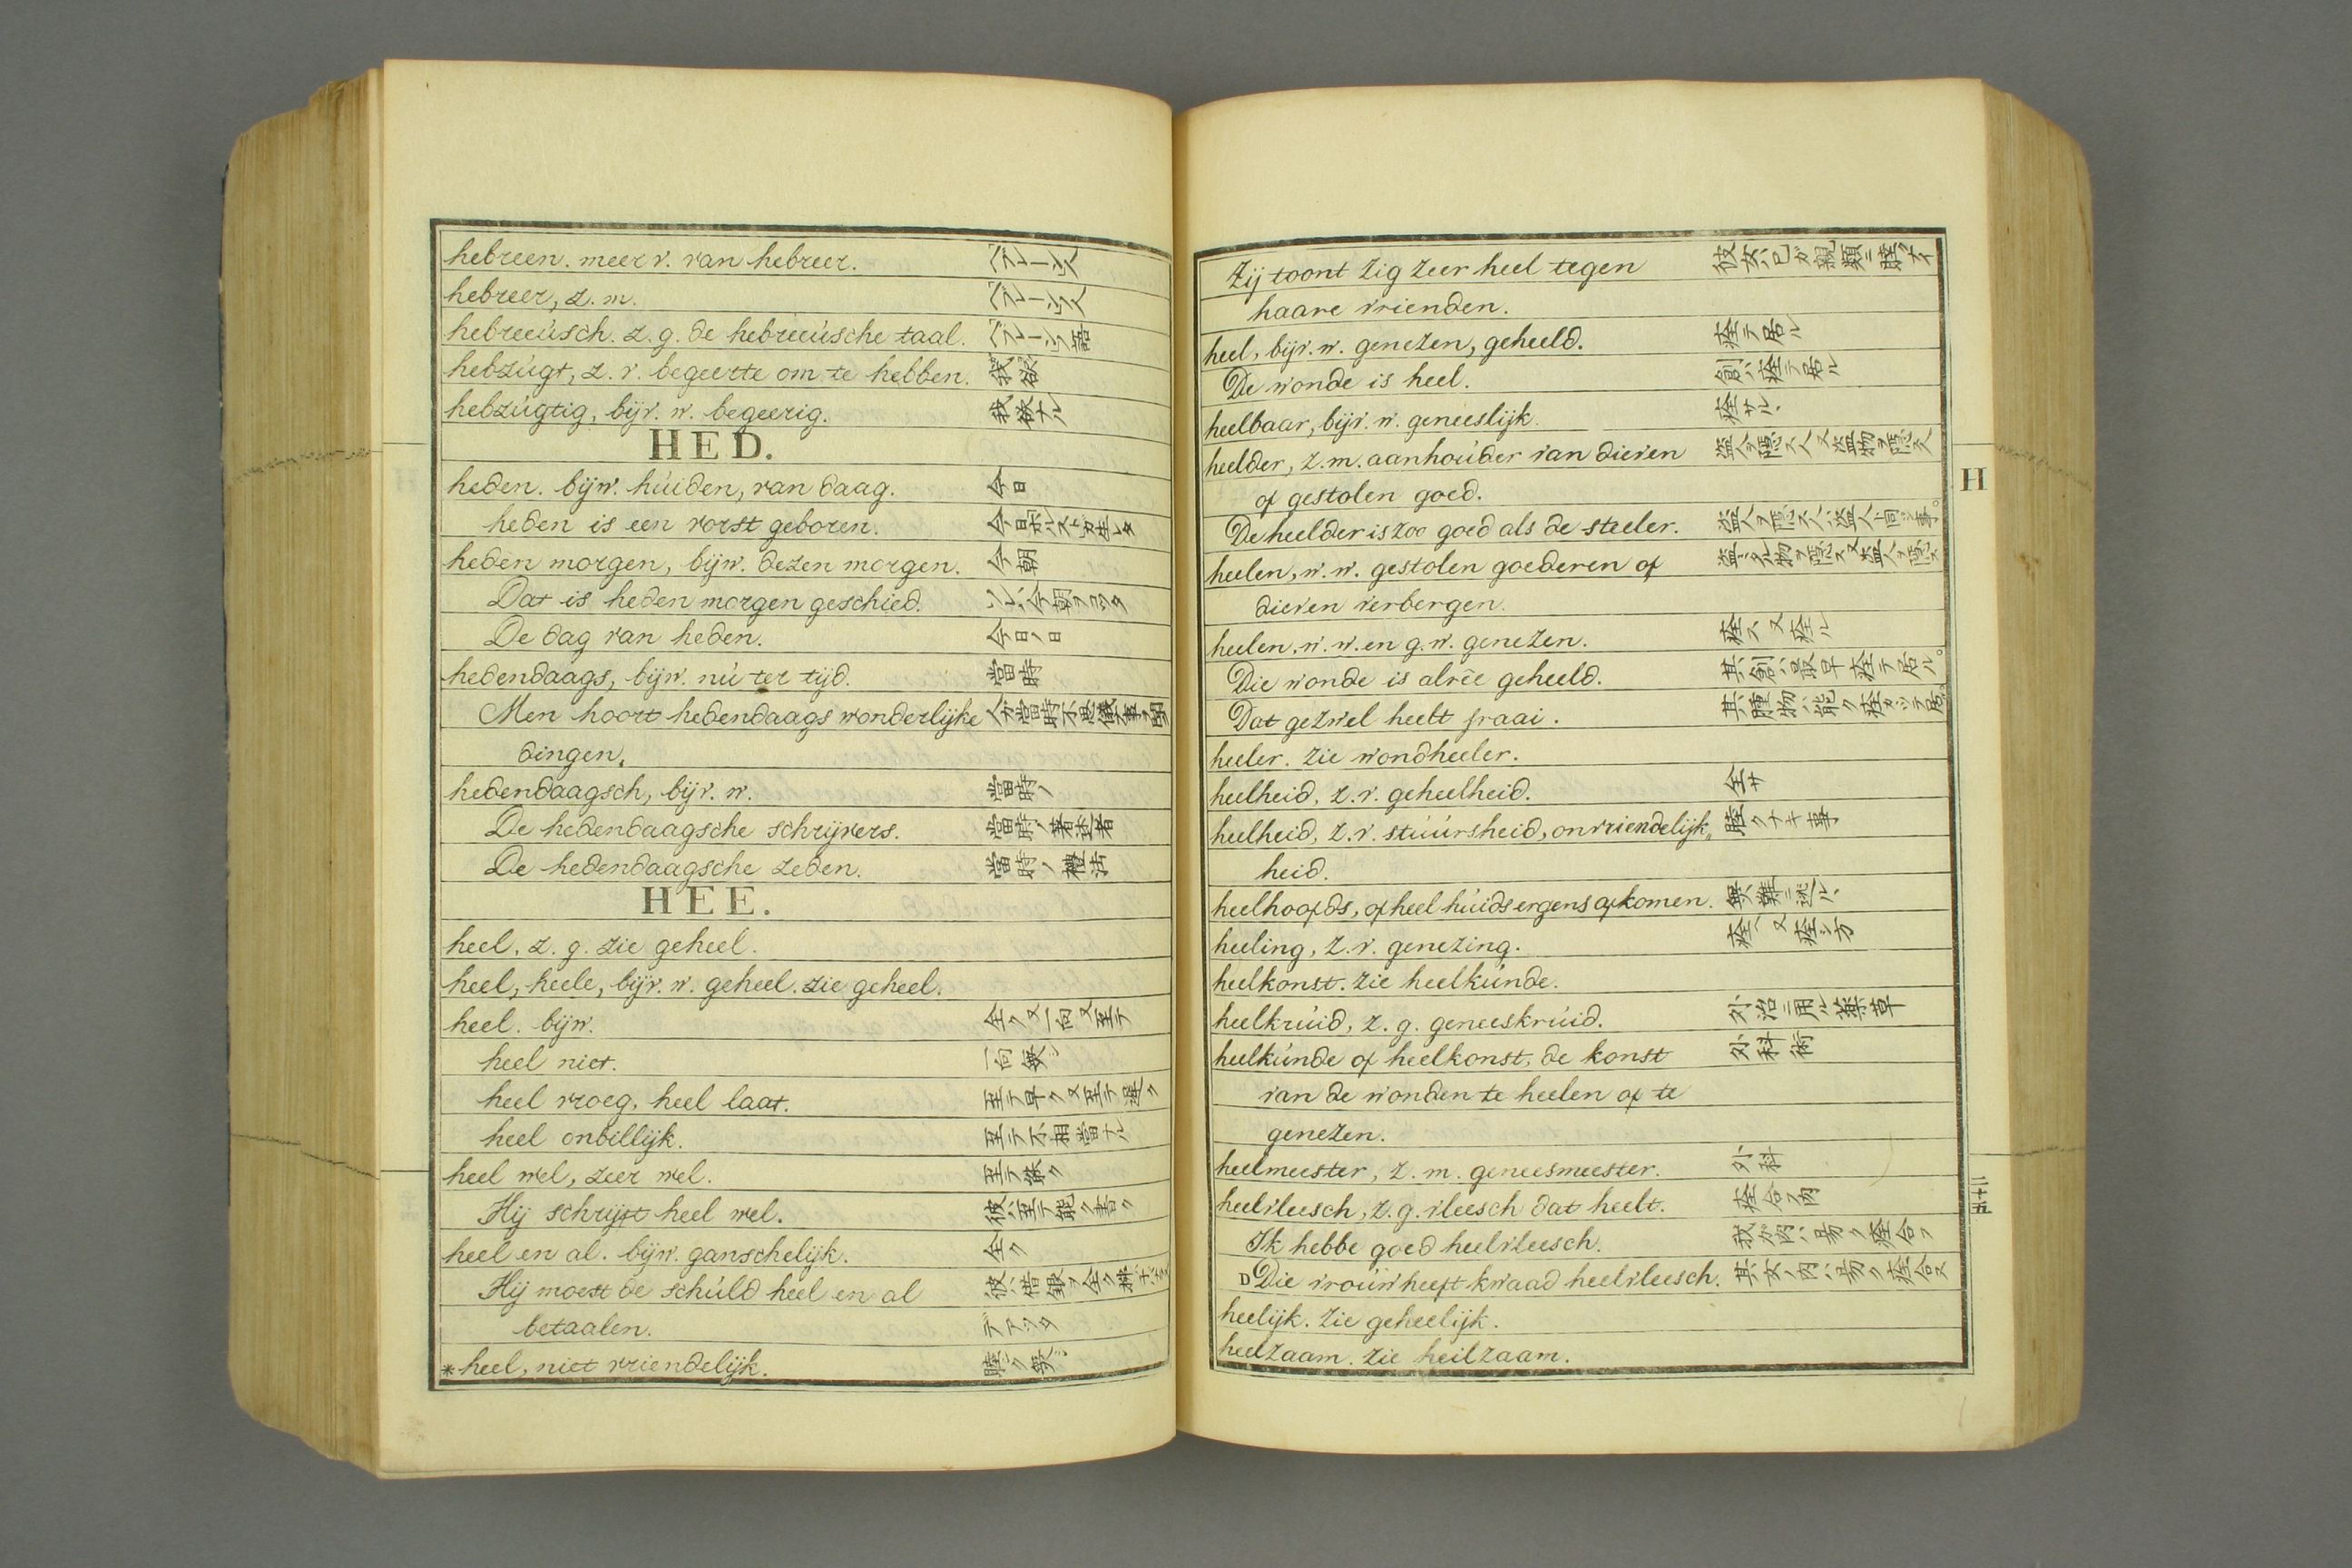 hebreen. meer v. van hebreer. ヘブレーウス人
hebreer, z. m. ヘブレーウス人
hebreeúsch. z. g. de hebreeúsche taal. ヘブレーウス語
hebzúgt, z. v. begeerte om te hebben. 我欲
hebzúgtig, bijv. w. begeerig. 我欲ナル
HED.
heden. bijw. húiden, van daag. 今日
heden is een vorst geboren. 今日
heden morgen, bijw. dezen morgen. 今朝
Dat is heden morgen geschied. ソレハ今朝ヲコツタ
De dag van heden. 今日ノ日
hedendaags, bijw. nú ter tijd. 當時
Men hoort hedendaags wonderlijke 人ガ當時不思儀ナ事ヲ聞
dingen.
hedendaagsch, bijv. w. 當時ノ
De hedendaagsche schrijvers. 當時ノ著述者
De hedendaagsche zeden. 當時ノ禮法
HEE.
heel, z. g. zie geheel.
heel, heele, bijv. w. geheel. zie geheel.
heel. bijw. 全ク又一向又至テ
heel niet. 一向無シ
heel vroeg, heel laat. 至テ早ク又至テ遅ク
heel onbillijk. 至テ不相當ナル
heel wel, zeer wel. 至テ能ク
Hij schrijft heel wel. 彼ハ至テ能ク書ク
heel en al. bijw. ganschelijk. 全ク
Hij moest de schúld heel en al 彼ハ借銀ヲ全ク拂ハ子バ
betaalen. デアツタ
*heel, niet vriendelijk. 睦シク無シ
Zij toont zig zeer heel tegen 彼女ハ己ガ親類ニ睦クナイ
haare vrienden.
heel, bijv. w. genezen, geheeld. 痊テ居ル
De wonde is heel. 創ハ痊テ居ル
heelbaar, bijv. w. geneeslijk. 痊サルヽ
heelder, z. m. aanhoúder van dieven 盗人ヲ隠ス人又盗物ヲ隠ス人
of gestolen goed.
De heelder is zoo goed als de steeler. 盗人ヲ隠ス人ハ盗人ト同シ事。
heelen, w. w. gestolen goederen of 盗ミタル物ヲ隠ス又盗人ヲ隠ス
dieven verbergen.
heelen, w. w. en g. w. genezen. 痊ス又痊ル
Die wonde is alrêe geheeld. 其創ハ最早痊テ居ル。
Dat gezwel heelt fraai. 其腫物ハ能ク痊カツテ居。
heeler. zie wondheeler.
heelheid, z. v. geheelheid. 全サ
heelheid, z. v. stúúrsheid, onvriendelijk„ 睦クナキ事
heid.
heelhoofds, of heel húids ergens afkomen. 無難ニ逃ルヽ
heeling, z. v. genezing. 痊ヘ又痊シ方
heelkonst. zie heelkúnde.
heelkrúid, z. g. geneeskrúid. 外治ニ用ル薬草
heelkúnde of heelkonst, de konst 外科術
van de wonden te heelen of te
genezen.
heelmeester, z. m. geneesmeester. 外科
heelvleesch, z. g. vleesch dat heelt. 痊合フ肉
Ik hebbe goed heelvleesch. 我ガ肉ハ易ク痊合フ
D Die vroúw heeft kwaad heelvleesch. 其女ノ肉ハ易ク痊合ヌ
heelijk. zie geheelijk.
heelzaam. zie heilzaam.
H
二十五